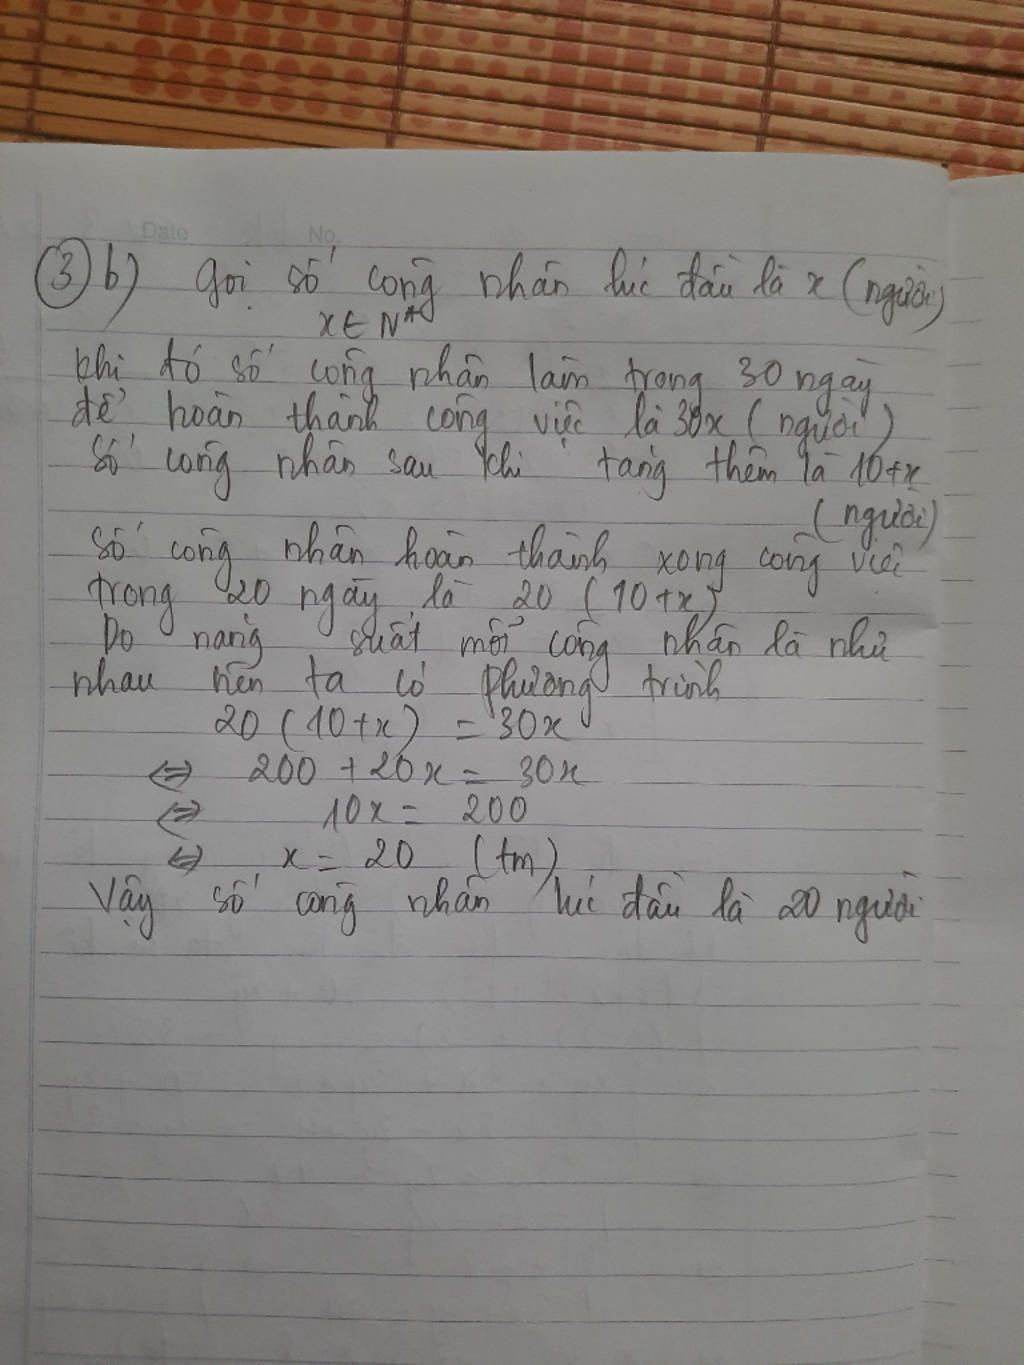 Date No.
③ b) Gọi số công nhân lúc đầu là x (người)
x ∈ N*
khi đó số công nhân làm trong 30 ngày
để hoàn thành công việc là 30x (người)
Số công nhân sau khi tăng thêm là 10+x
(người)
Số công nhân hoàn thành xong công việc
trong 20 ngày là 20 (10+x)
Do năng suất mỗi công nhân là như
nhau nên ta có phương trình
20 (10+x) = 30x
⇔ 200 + 20x = 30x
⇔ 10x = 200
⇔ x = 20 (tm)
Vậy số công nhân lúc đầu là 20 người